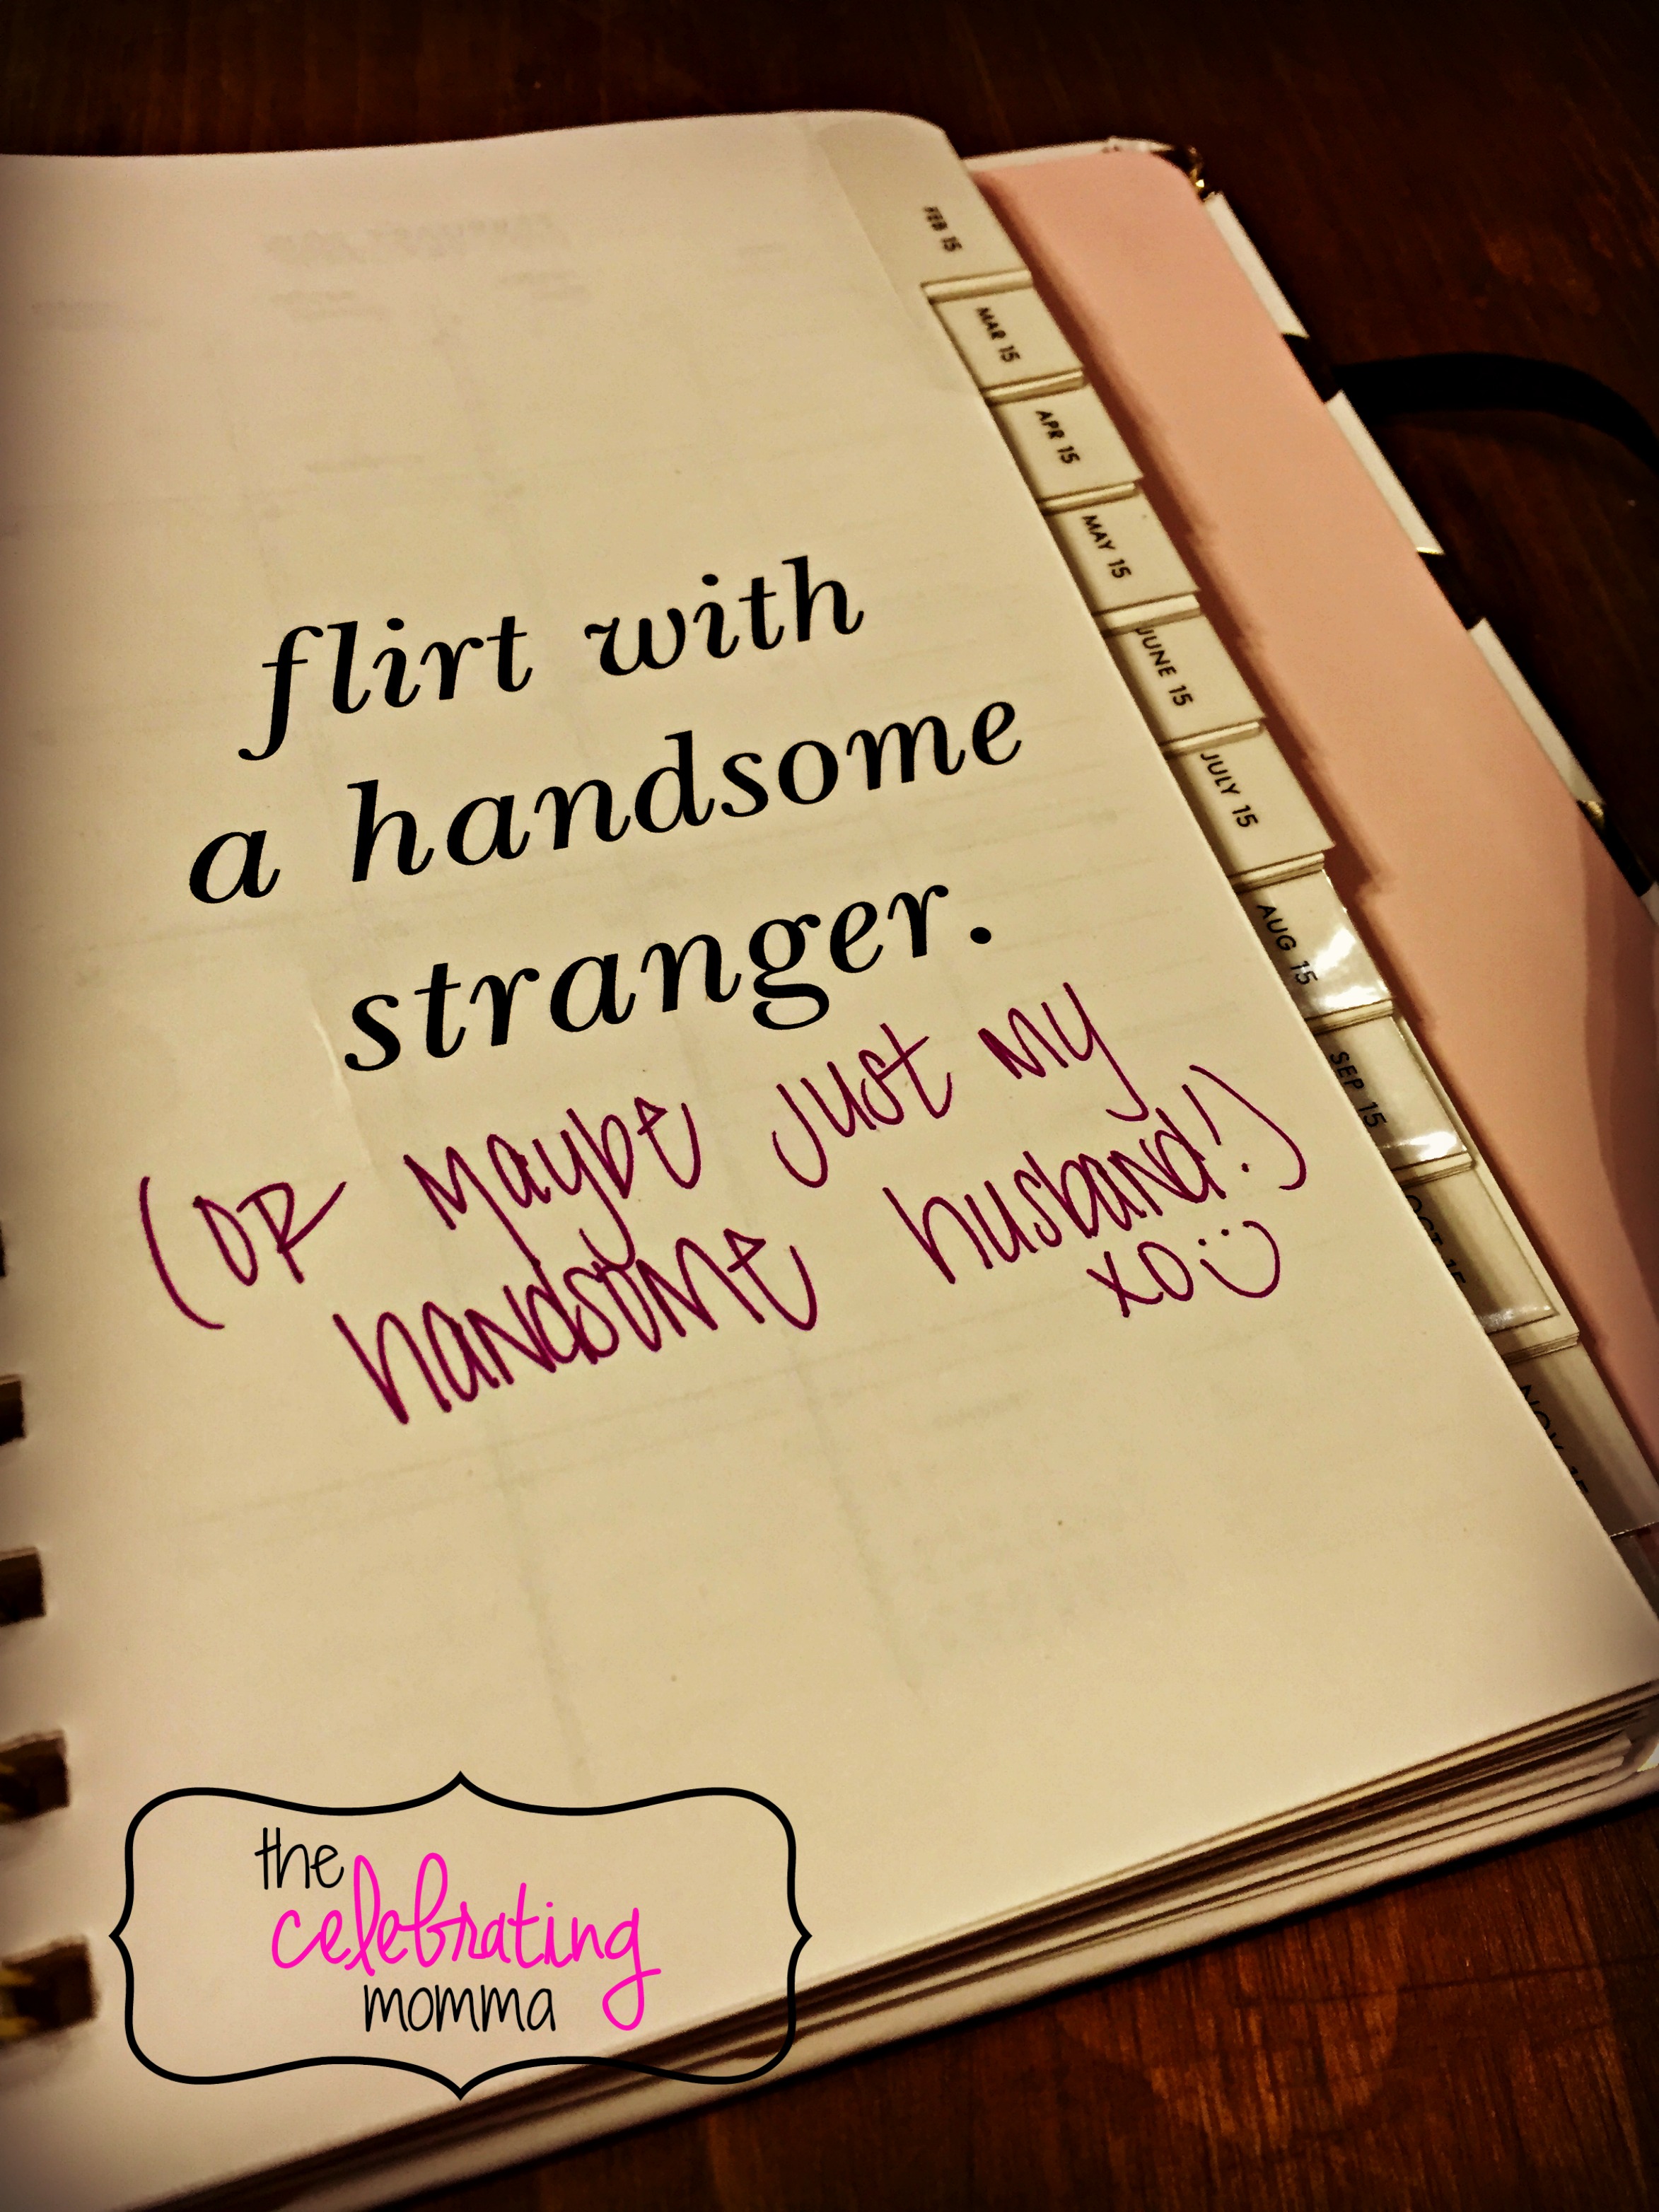 flirt with
a handsome
stranger.
(OR Maybe just my
handsome husband!)
xo
FEB 15
MAR 15
APR 15
MAY 15
JUNE 15
JULY 15
AUG 15
SEP 15
OCT 15
NOV 15
the
celebrating
momma